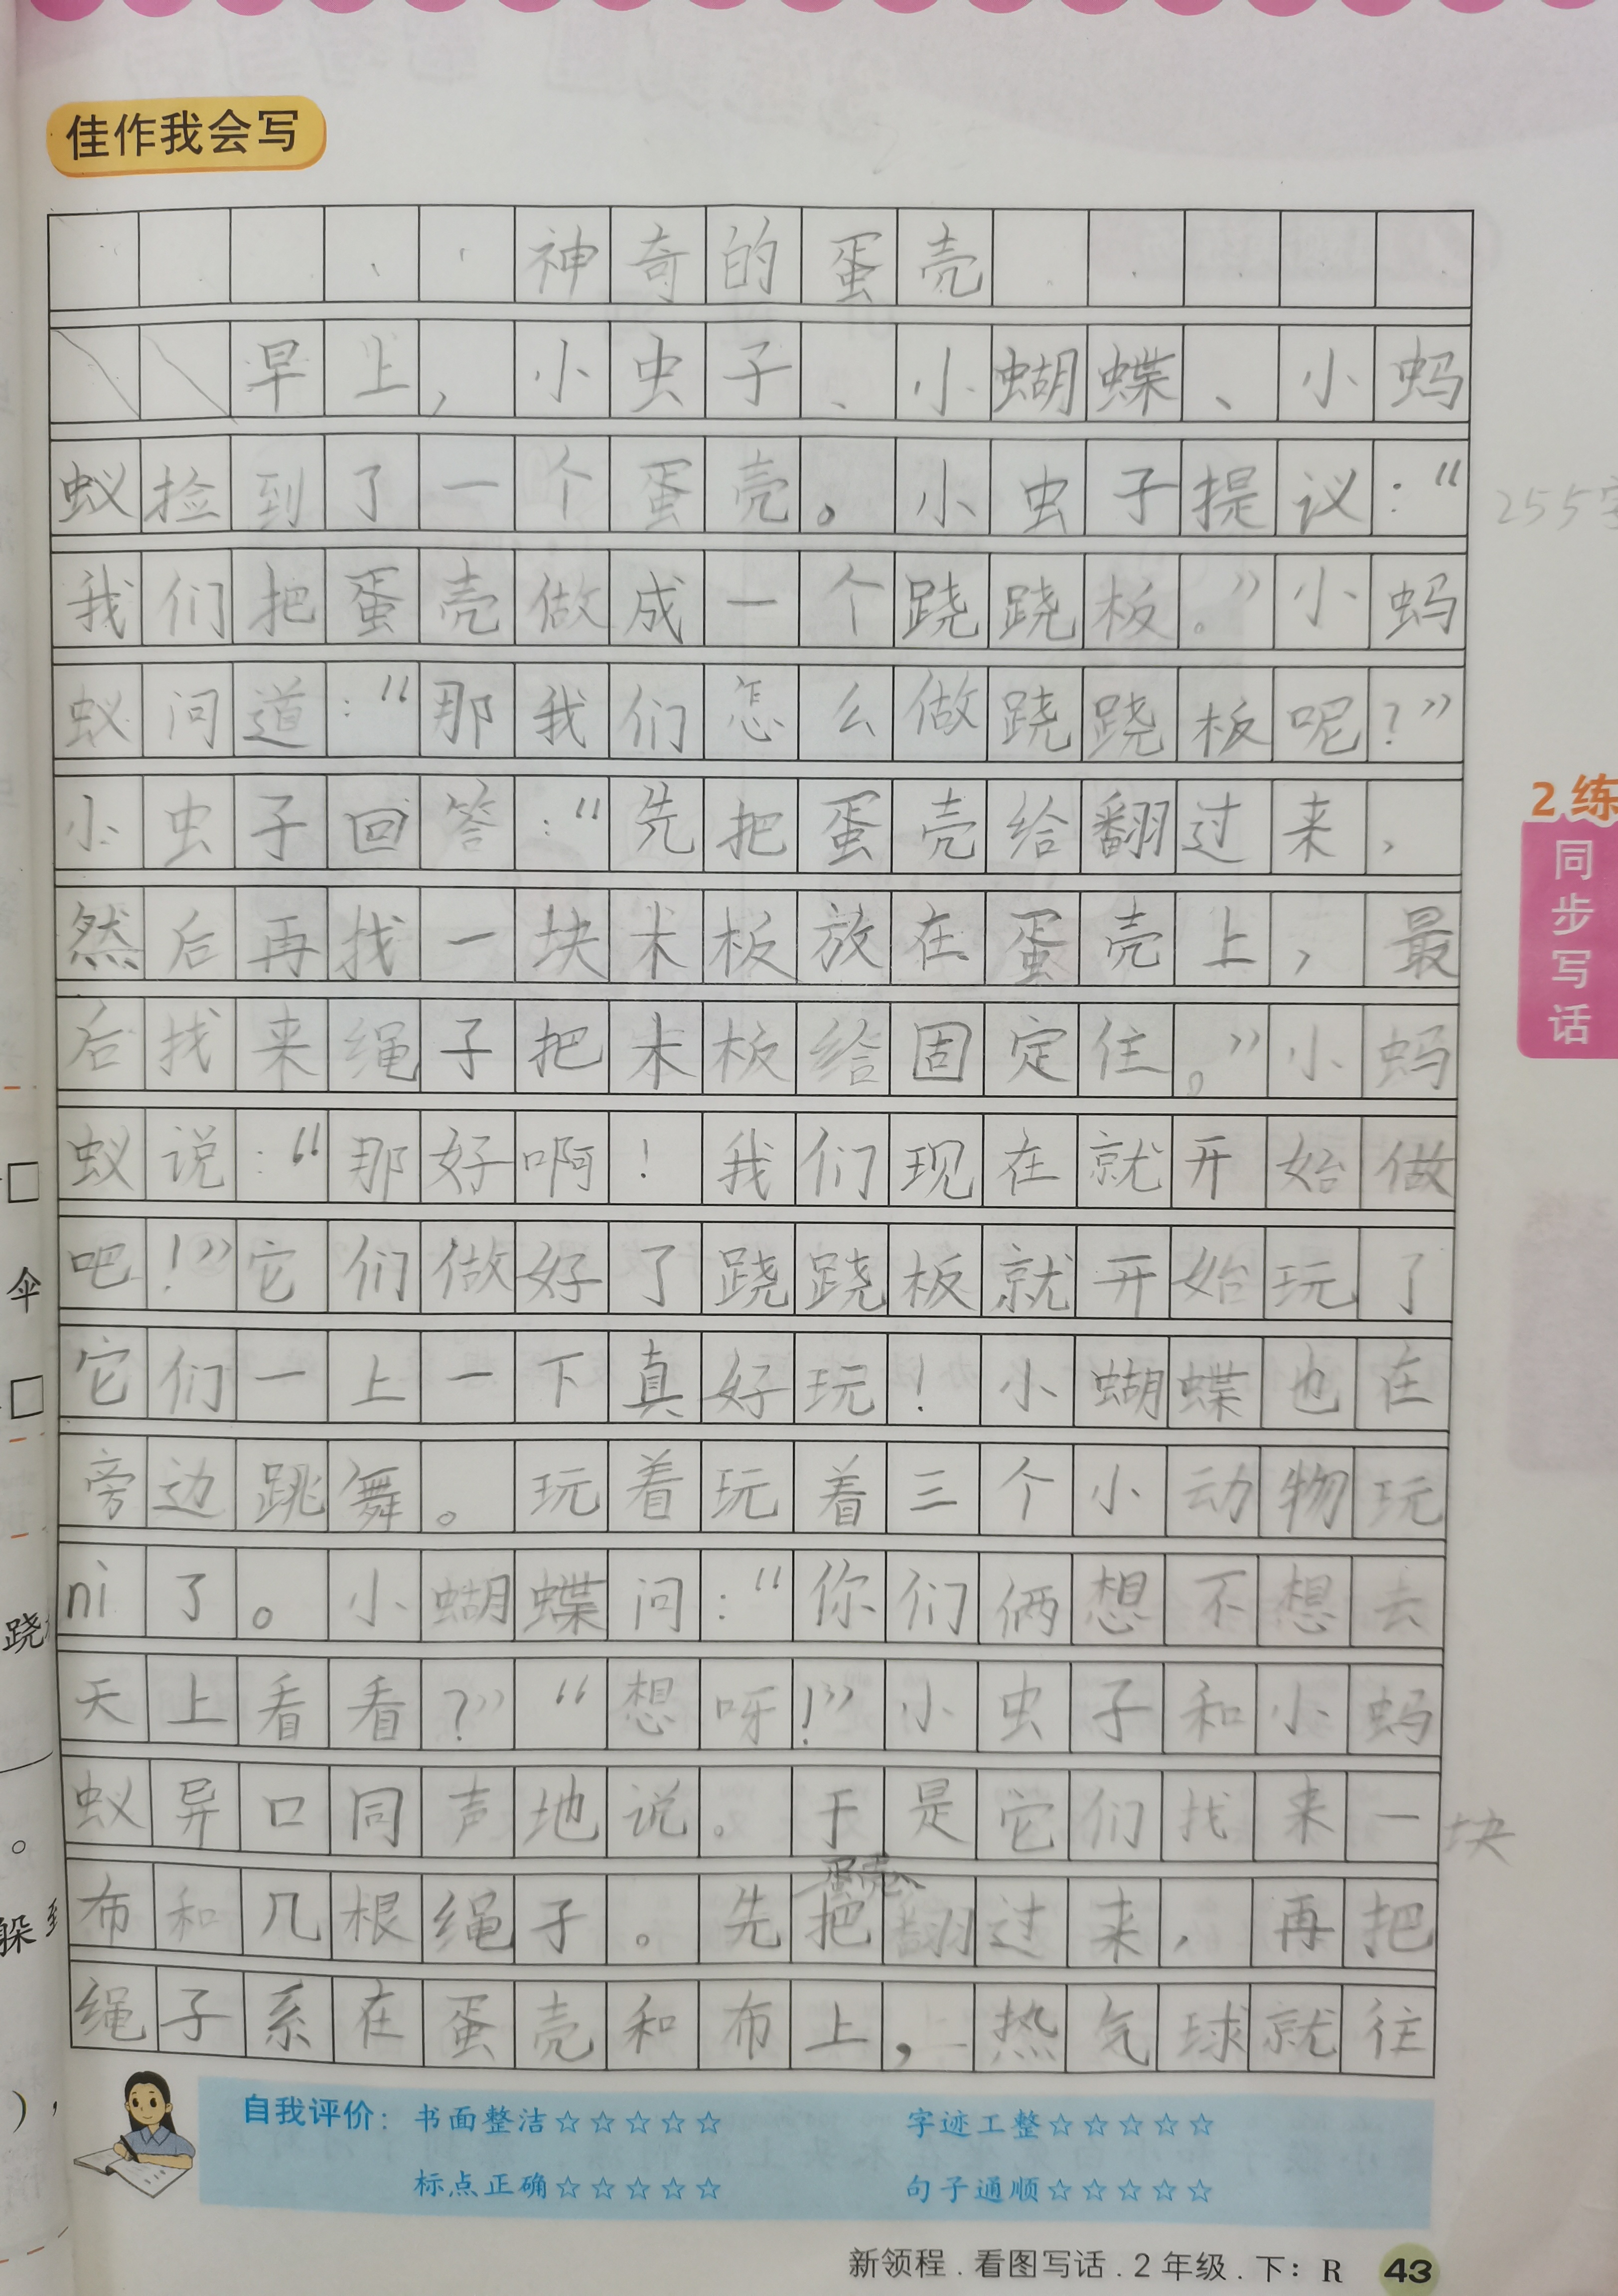 佳作我会写
神奇的蛋壳
早上，小虫子、小蝴蝶、小蚂
蚁捡到了一个蛋壳。小虫子提议：“
255字
我们把蛋壳做成一个跷跷板。”小蚂
蚁问道：“那我们怎么做跷跷板呢？”
小虫子回答：“先把蛋壳给翻过来，
然后再找一块木板放在蛋壳上，最
后找来绳子把木板给固定住。”小蚂
蚁说：“那好啊！我们现在就开始做
吧！”它们做好了跷跷板就开始玩了
它们一上一下真好玩！小蝴蝶也在
旁边跳舞。玩着玩着三个小动物玩
ni了。小蝴蝶问：“你们俩想不想去
天上看看？”“想呀！”小虫子和小蚂
蚁异口同声地说。于是它们找来一块
布和几根绳子。先把蛋壳翻过来，再把
绳子系在蛋壳和布上，热气球就往
2练
同步写话
伞
跷
。
躲到
），
自我评价：书面整洁☆☆☆☆☆ 字迹工整☆☆☆☆☆
标点正确☆☆☆☆☆ 句子通顺☆☆☆☆☆
新领程.看图写话.2年级.下：R 43